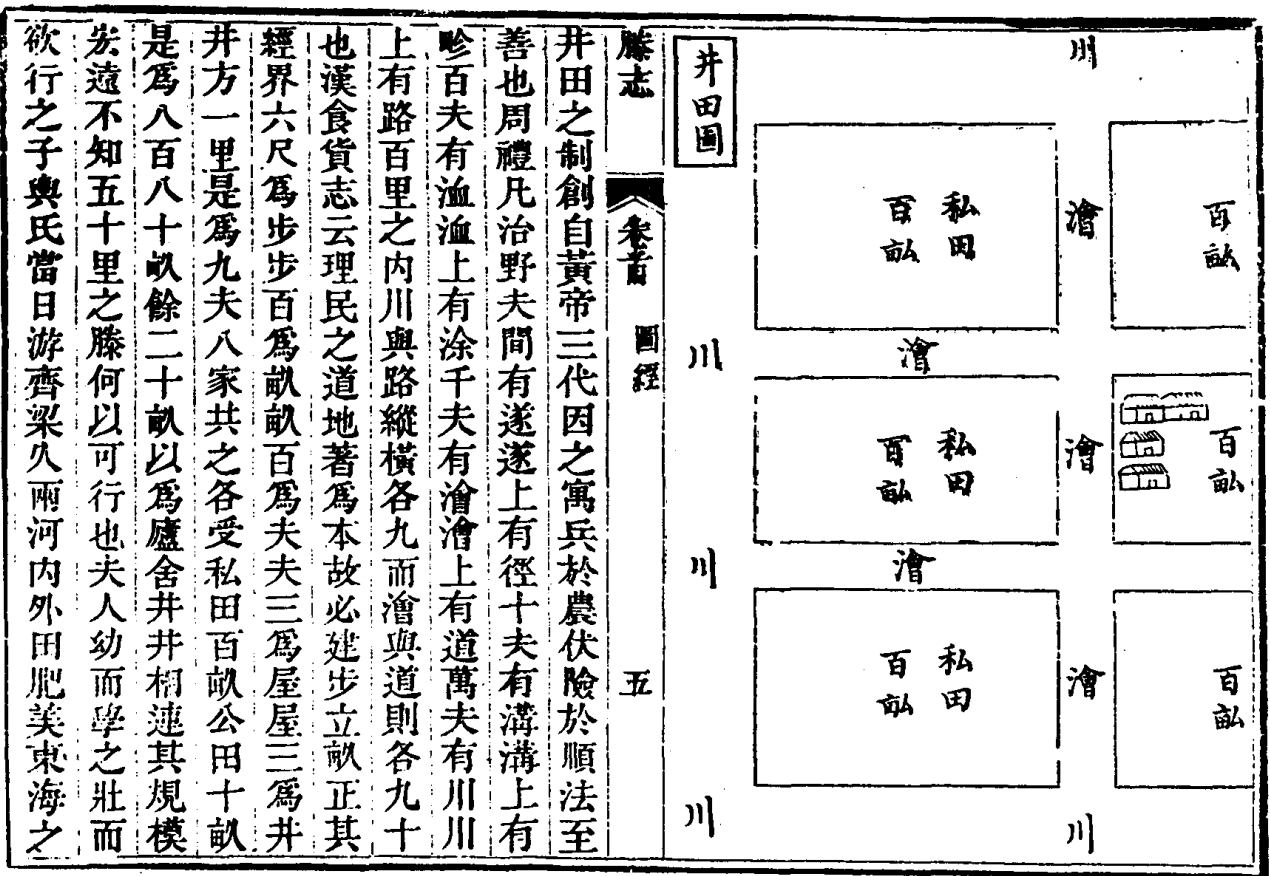 百畆
百畆
百畆
川
澮
澮
澮
川
私田
百畆
澮
私田
百畆
澮
私田
百畆
川
川
川
井田圖
滕志
卷首
圖經
五
井田之制創自黃帝三代因之寓兵於農伏險於順法至
善也周禮凡治野夫間有遂遂上有徑十夫有溝溝上有
畛百夫有洫洫上有涂千夫有澮澮上有道萬夫有川川
上有路百里之內川與路縱橫各九而澮與道則各九十
也漢食貨志云理民之道地著爲本故必建步立畝正其
經界六尺爲步步百爲畝畝百爲夫夫三爲屋屋三爲井
井方一里是爲九夫八家共之各受私田百畝公田十畝
是爲八百八十畝餘二十畝以爲廬舍井井相連其規模
宏遠不知五十里之滕何以可行也夫人幼而學之壯而
欲行之子輿氏當日游齊梁久兩河內外田肥美東海之